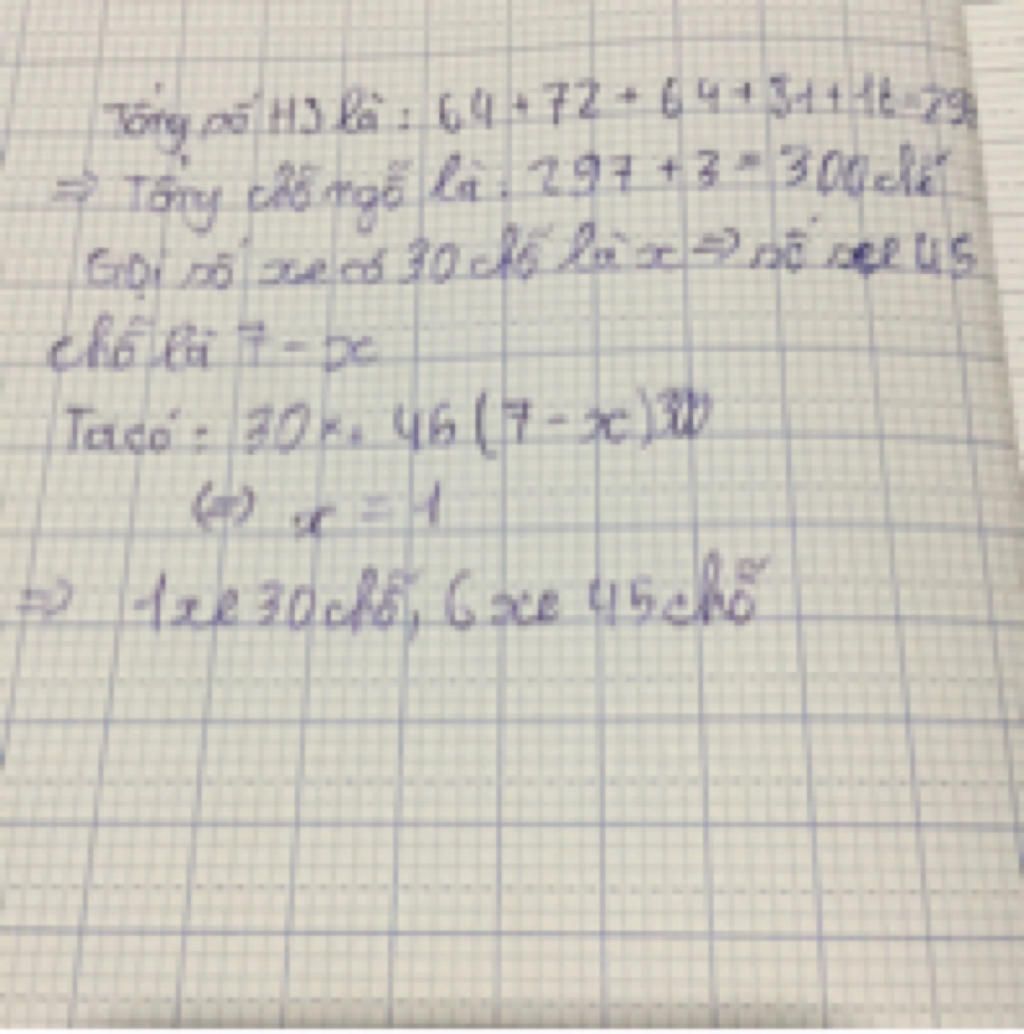 Tổng số HS là: 64 + 72 + 64 + 31 + = 29
=> Tổng chỗ ngồ là: 297 + 3 = 300 chỗ
Gọi số xe có 30 chỗ là x => số xe 45
chỗ là 7 - x
Ta có: 30 45 (7 - x) 300
(=) x = 1
=> 1 xe 30 chỗ, 6 xe 45 chỗ